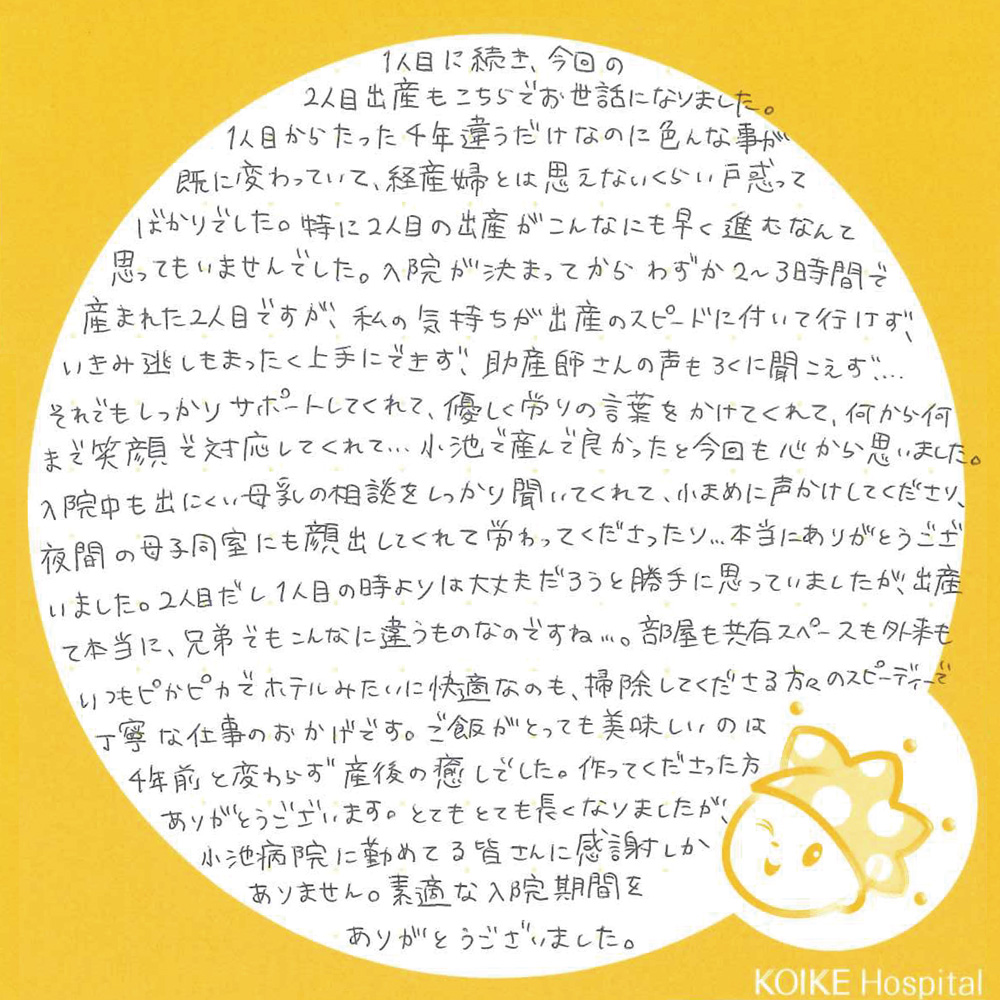 1人目に続き、今回の
2人目出産もこちらでお世話になりました。
1人目からたった4年違うだけなのに色んな事が
既に変わっていて、経産婦とは思えないくらい戸惑って
ばかりでした。特に2人目の出産がこんなにも早く進むなんて
思ってもいませんでした。入院が決まってからわずか2〜3時間で
産まれた2人目ですが、私の気持ちが出産のスピードに付いて行けず、
いきみ逃しもまったく上手にできず、助産師さんの声もろくに聞こえず....
それでもしっかりサポートしてくれて、優しく労りの言葉をかけてくれて、何から何
まで笑顔で対応してくれて...小池で産んで良かったと今回も心から思いました。
入院中も出にくい母乳の相談をしっかり聞いてくれて、小まめに声かけしてくださり、
夜間の母子同室にも顔出してくれて労わってくださったり...本当にありがとうござ
いました。2人目だし1人目の時よりは大丈夫だろうと勝手に思っていましたが、出産
て本当に、兄弟でもこんなに違うものなのですね...。部屋も共有スペースも外来も
いつもピカピカでホテルみたいに快適なのも、掃除してくださる方々のスピーディーで
丁寧な仕事のおかげです。ご飯がとっても美味しいのは
4年前と変わらず産後の癒しでした。作ってくださった方
ありがとうございます。とてもとても長くなりましたが、
小池病院に勤めてる皆さんに感謝しか
ありません。素適な入院期間を
ありがとうございました。
KOIKE Hospital